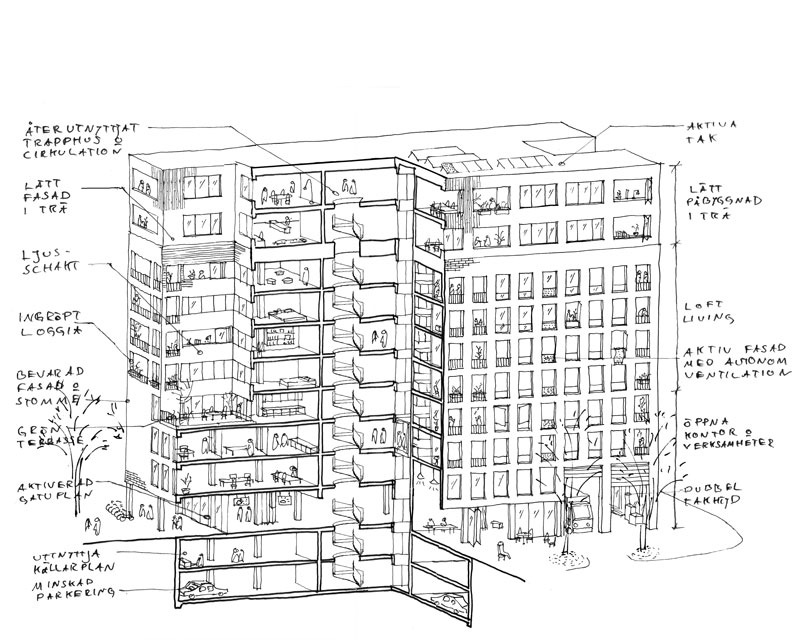 ÅTERUTNYTTJAT
TRAPPHUS O
CIRKULATION
LÄTT
FASAD
I TRÄ
LJUS-
SCHAKT
INGRÖPT
LOGGIA
BEVARAD
FASAD O
STOMME
GRÖN
TERRASSE
AKTIVERAD
GATUPLAN
UTTNYTTJA
KÄLLARPLAN
MINSKAD
PARKERING
AKTIVA
TAK
LÄTT
PÅBYGGNAD
I TRÄ
LOFT
LIVING
AKTIV FASAD
MED AUTONOM
VENTILATION
ÖPPNA
KONTOR O
VERKSAMHETER
DUBBEL
TAKHÖJD